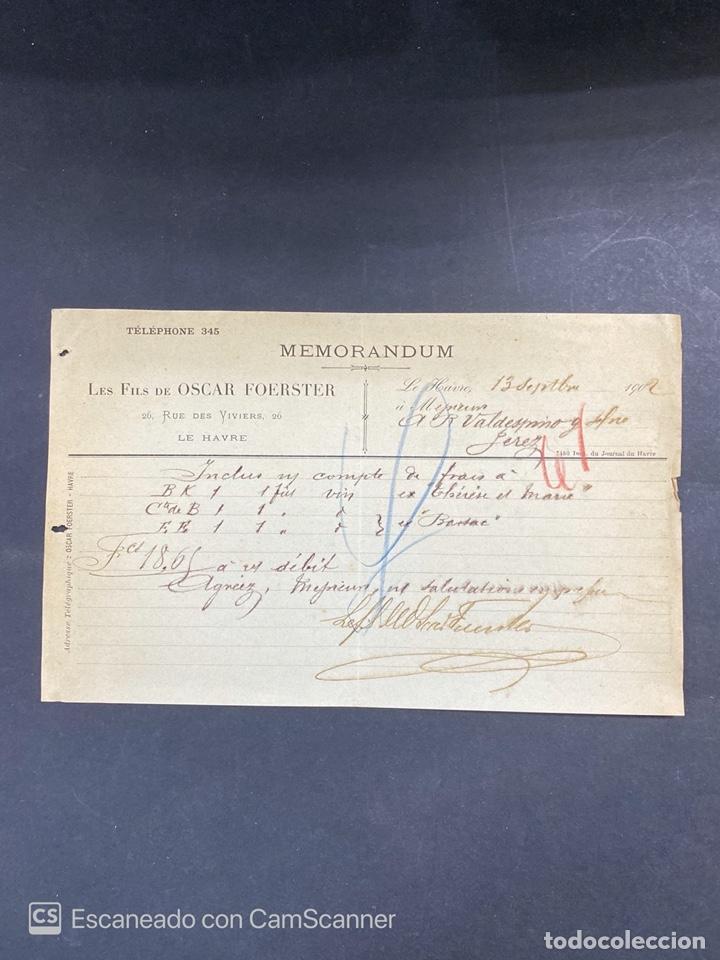 TÉLÉPHONE 345
MEMORANDUM
LES FILS DE OSCAR FOERSTER
26, RUE DES VIVIERS, 26
LE HAVRE
Le Havre, 13 Septbre 1902
à Messieurs
A R Valdespino y Hno
Jerez
7480 Imp. du Journal du Havre
Adresse Télégraphique : OSCAR FOERSTER - HAVRE
Inclus n/ compte de frais à
B K 1 1 fût vin ex "Thérèse et Marie"
Cta de B 1 1 " d
F E 1 1 " d } ex "Barsac"
Fcs 18.65 à v/ débit
Agréez, Messieurs, n/ salutations
CS Escaneado con CamScanner
todocoleccion